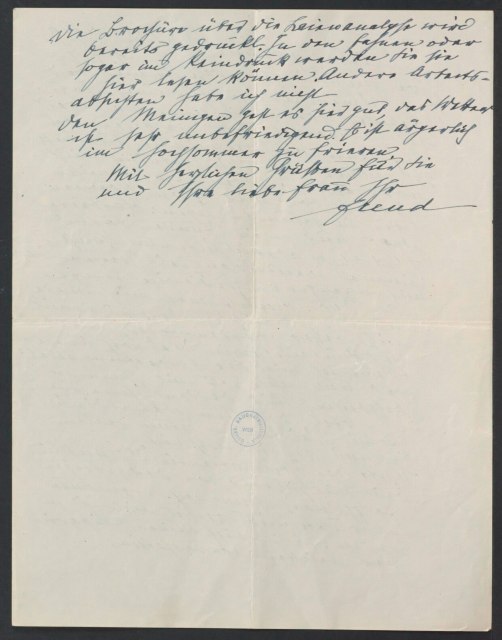 Die Brochüre über die Laienanalyse wird
bereits gedruckt. In den Fahnen oder
sogar im Reindruck werden Sie sie
hier lesen können. Andere Arbeits-
absichten habe ich nicht.
Den Meinigen geht es hier gut, das Wetter
ist sehr unbefriedigend. Es ist ärgerlich
im Hochsommer zu frieren.
Mit herzlichen Grüßen für Sie
und Ihre liebe Frau Ihr
Freud
WIEN